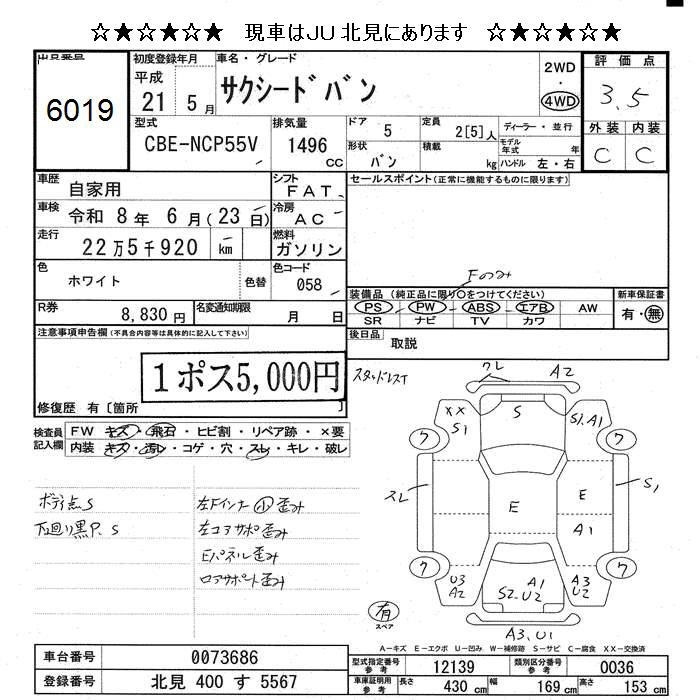 ☆★☆★☆ 現車はJU北見にあります ☆★☆★☆
出品番号
6019
初度登録年月
平成
21 5月
車名・グレード
サクシードバン
2WD
4WD
評価点
3.5
外装 内装
C C
型式
CBE-NCP55V
排気量
1496
CC
ドア
5
形状
バン
定員
2[5]人
積載
kg
ディーラー・並行
モデル年式 年
ハンドル 左・右
車歴
自家用
シフト
FAT
車検
令和 8年 6月(23日)
冷房
AC
走行
22万5千920 km
燃料
ガソリン
色
ホワイト
色替
色コード
058
R券
8,830円
名変期限通知
月 日
セールスポイント(正常に機能するものに限ります)
Fのみ
装備品 (純正品に限り○をつけてください)
PS PW ABS エアB AW
SR ナビ TV カワ
新車保証書
有・無
後日品
取説
注意事項申告欄(不具合内容等は具体的に記入して下さい)
1ポス5,000円
修復歴 有〔箇所 〕
検査員記入欄
FW キズ・飛石・ヒビ割・リペア跡・×要
内装 キズ・汚レ・コゲ・穴・スレ・キレ・破レ
ボディ点S
下廻り黒P. S
左Fインナー小歪み
左コアサポ歪み
Eパネル歪み
ロアサポート歪み
スタッドレスT
クレ
A2
XX
S1
S
S1.A1
ワ
ワ
スレ
E
E
S1
A1
ワ
ワ
U3
A2
S2.U2
A1
A3
U2
A3.U1
有
スペア
A-キズ E-エクボ U-凹み W-補修跡 S-サビ C-腐食 XX-交換済
車台番号
0073686
登録番号
北見 400 す 5567
型式指定番号
参考
12139
類別区分番号
参考
0036
車庫証明用
参考
長さ
430 cm
幅
169 cm
高さ
153 cm